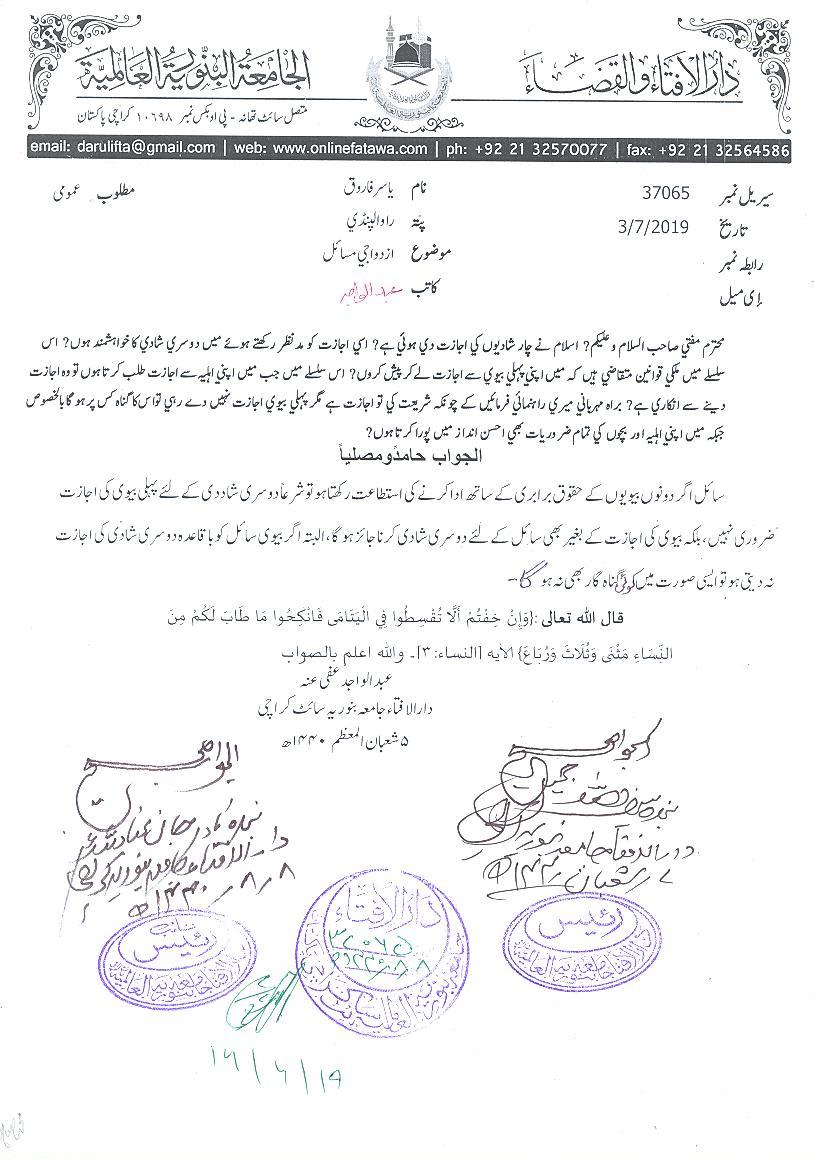 دار الافتاء والقضاء
الجامعة البنورية العالمية
متصل سائٹ تھانہ - پی او بکس نمبر ۱۰۶۹۸ کراچی پاکستان
email: darulifta@gmail.com | web: www.onlinefatawa.com | ph: +92 21 32570077 | fax: +92 21 32564586
سیریل نمبر 37065 نام یاسر فاروق مطلوب عمومی
تاریخ 3/7/2019 پتہ راولپنڈي
رابطہ نمبر موضوع ازدواجي مسائل
اِی میل کاتب عبدالواجد
محترم مفتي صاحب السلام و علیکم? اسلام نے چار شادیوں کي اجازت دي ہوئي ہے? اسي اجازت کو مدنظر رکھتے ہوئے میں دوسري شادي کا خواہشمند ہوں? اس
سلسلے میں ملکي قوانین متقاضي ہیں کہ میں اپني پہلي بیوي سے اجازت لے کر پیش کروں? اس سلسلے میں جب میں اپني اہلیہ سے اجازت طلب کرتا ہوں تو وہ اجازت
دینے سے انکاري ہے? براہ مہرباني میري راہنمائي فرمائیں کے چونکہ شریعت کي تو اجازت ہے مگر پہلي بیوي اجازت نہیں دے رہي تو اس کا گناہ کس پر ہو گا بالخصوص
جبکہ میں اپني اہلیہ اور بچوں کي تمام ضروریات بھي احسن انداز میں پورا کرتا ہوں?
الجواب حامدًا ومصلیاً
سائل اگر دونوں بیویوں کے حقوق برابری کے ساتھ ادا کرنے کی استطاعت رکھتا ہو تو شرعاً دوسری شاددی کے لئے پہلی بیوی کی اجازت
ضروری نہیں، بلکہ بیوی کی اجازت کے بغیر بھی سائل کے لئے دوسری شادی کرنا جائز ہو گا، البتہ اگر بیوی سائل کو باقاعدہ دوسری شادی کی اجازت
نہ دیتی ہو تو ایسی صورت میں کوئی گناہ گار بھی نہ ہو گا۔
قال الله تعالى :{وَإِنْ خِفْتُمْ أَلَّا تُقْسِطُوا فِي الْيَتَامَى فَانْكِحُوا مَا طَابَ لَكُمْ مِنَ
النِّسَاءِ مَثْنَى وَثُلَاثَ وَرُبَاعَ} الآيه [النساء: ۳]۔ والله اعلم بالصواب
عبدالواجد عفی عنہ
دار الافتاء جامعہ بنوریہ سائٹ کراچی
۵ شعبان المعظم ۱۴۴۰ھ
الجواب
الجواب
دار الافتاء
رئیس
رئیس
دار الافتاء